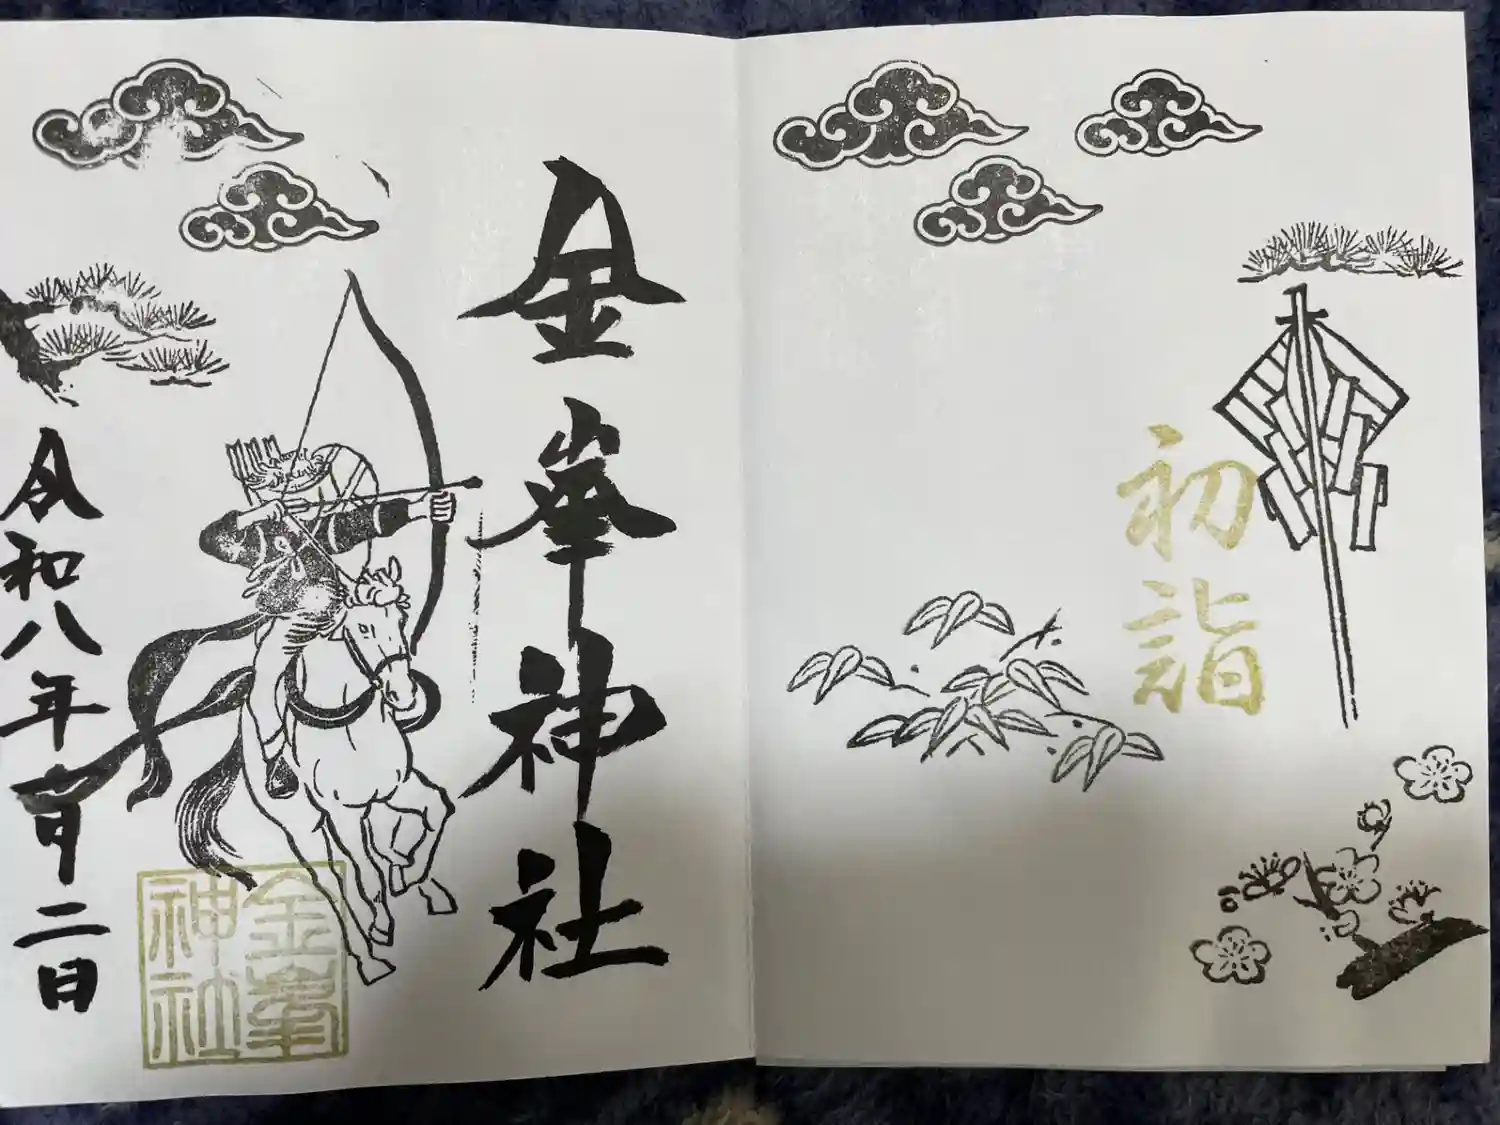 初詣
金峯神社
令和八年月二日
金峯
神社